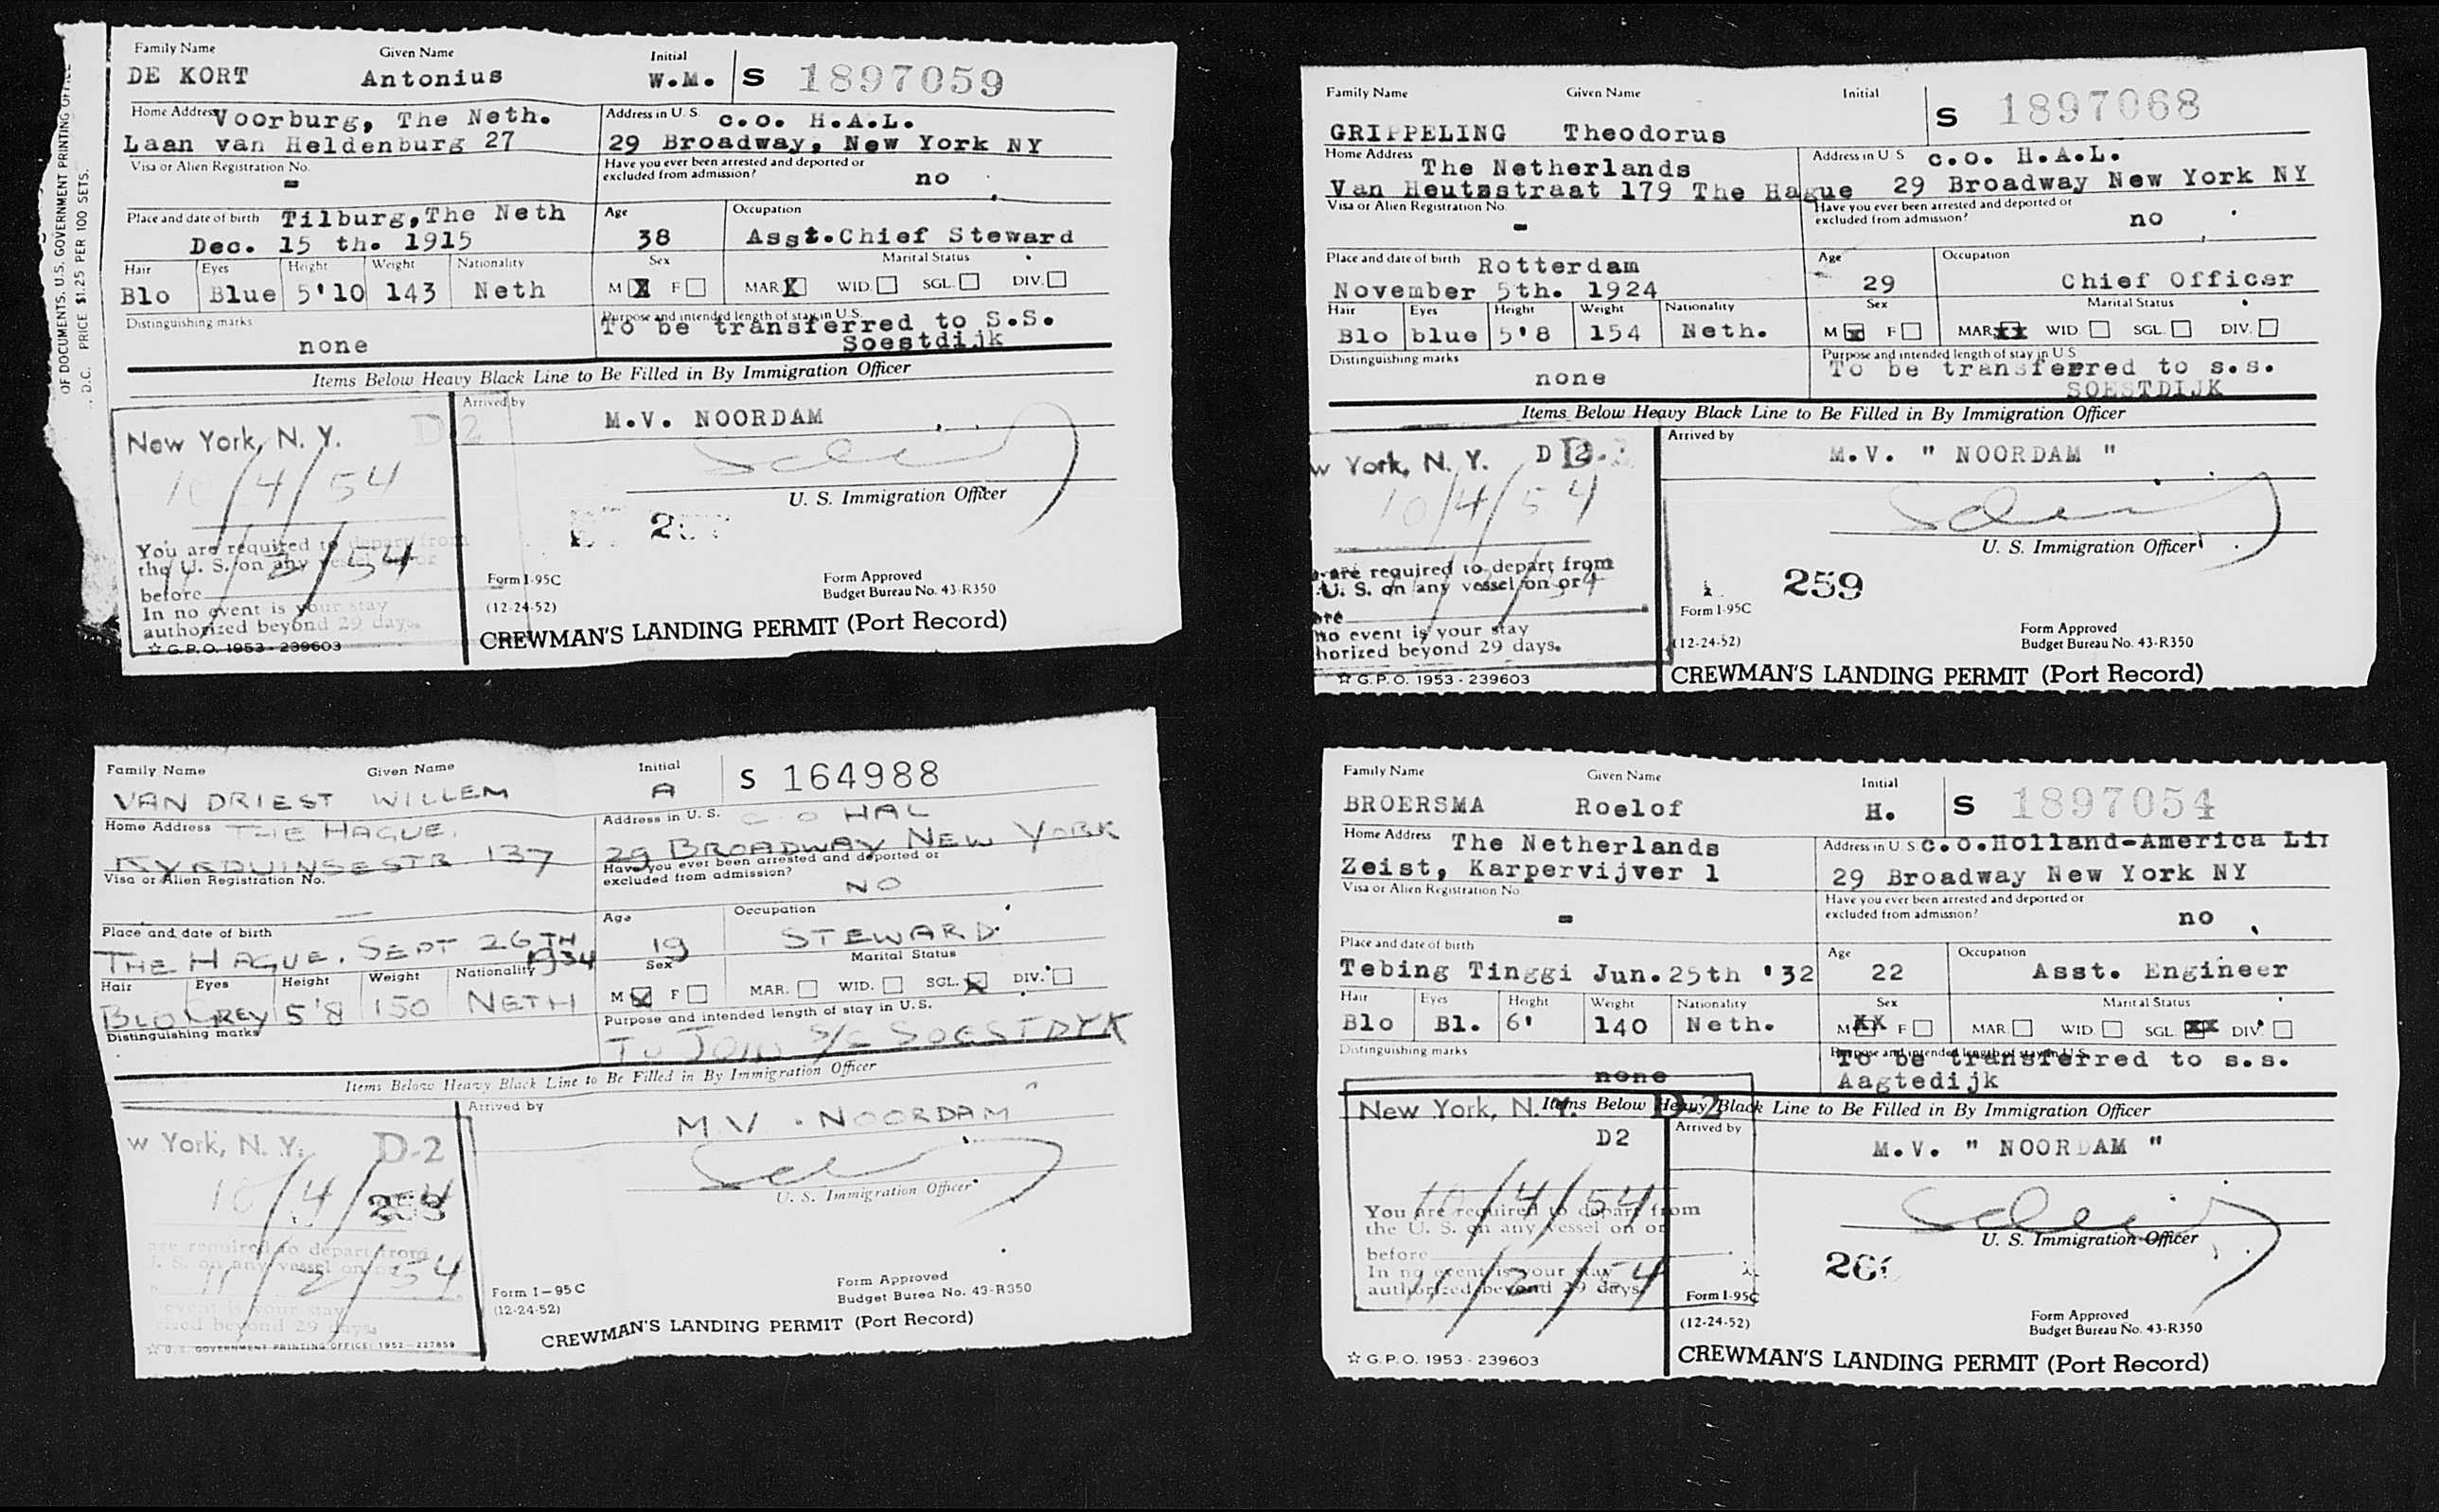 OF DOCUMENTS, U.S. GOVERNMENT PRINTING OFFICE
, D.C. PRICE $1.25 PER 100 SETS.
Family Name Given Name Initial
DE KORT Antonius W.M. S 1897059
Home Address Voorburg, The Neth. Address in U.S. c.o. H.A.L.
Laan van Heldenburg 27 29 Broadway, New York NY
Visa or Alien Registration No. Have you ever been arrested and deported or
excluded from admission? no
-
Place and date of birth Tilburg, The Neth Age Occupation
Dec. 15 th. 1915 38 Asst.Chief Steward
Hair Eyes Height Weight Nationality Sex Marital Status
Blo Blue 5'10 143 Neth M X F MAR. X WID. SGL. DIV.
Distinguishing marks Purpose and intended length of stay in U.S.
none To be transferred to S.S.
Soestdijk
Items Below Heavy Black Line to Be Filled in By Immigration Officer
Arrived by
New York, N. Y. D 2 M.V. NOORDAM
10/4/54
U. S. Immigration Officer
You are required to depart from
the U. S. on any vessel on or
before 11/2/54
In no event is your stay
authorized beyond 29 days.
Form I-95C Form Approved
(12-24-52) Budget Bureau No. 43-R350
☆ G.P.O. 1953-239603
CREWMAN'S LANDING PERMIT (Port Record)
Family Name Given Name Initial
GRIPPELING Theodorus S 1897068
Home Address The Netherlands Address in U S c.o. H.A.L.
Van Heutzstraat 179 The Hague 29 Broadway New York NY
Visa or Alien Registration No. Have you ever been arrested and deported or
excluded from admission? no
-
Place and date of birth Rotterdam Age Occupation
November 5th. 1924 29 Chief Officer
Hair Eyes Height Weight Nationality Sex Marital Status
Blo blue 5'8 154 Neth. M x F MAR. xx WID. SGL. DIV.
Distinguishing marks Purpose and intended length of stay in U.S
none To be transferred to s.s.
SOESTDIJK
Items Below Heavy Black Line to Be Filled in By Immigration Officer
Arrived by
w York, N. Y. D 2 D-2 M.V. " NOORDAM "
10/4/54
U. S. Immigration Officer
are required to depart from
U. S. on any vessel on or
259
no event is your stay
horized beyond 29 days.
Form I-95C
(12-24-52) Form Approved
Budget Bureau No. 43-R350
☆ G.P.O. 1953-239603
CREWMAN'S LANDING PERMIT (Port Record)
Family Name Given Name Initial
VAN DRIEST WILLEM A S 164988
Home Address THE HAGUE. Address in U. S. C O HAL
KYKDUINSESTR 137 29 BROADWAY NEW YORK
Visa or Alien Registration No. Have you ever been arrested and deported or
excluded from admission? NO
—
Place and date of birth Age Occupation
THE HAGUE. SEPT 26TH 1934 19 STEWARD
Hair Eyes Height Weight Nationality Sex Marital Status
BLO GREY 5'8 150 NETH M F MAR. WID. SGL. DIV.
Distinguishing marks Purpose and intended length of stay in U.S.
TO JOIN S/S SOESTDYK
Items Below Heavy Black Line to Be Filled in By Immigration Officer
Arrived by
w York, N. Y. D-2 M V . NOORDAM
10/4/54
U. S. Immigration Officer
are required to depart from
U. S. on any vessel on or
11/2/54
event is your stay
rized beyond 29 days.
Form I-95C Form Approved
(12-24-52) Budget Burea No. 43-R350
☆ U.S. GOVERNMENT PRINTING OFFICE: 1952-227859
CREWMAN'S LANDING PERMIT (Port Record)
Family Name Given Name Initial
BROERSMA Roelof H. S 1897054
Home Address The Netherlands Address in U S c.o.Holland-America Lin
Zeist, Karpervijver 1 29 Broadway New York NY
Visa or Alien Registration No. Have you ever been arrested and deported or
excluded from admission? no
-
Place and date of birth Age Occupation
Tebing Tinggi Jun.25th '32 22 Asst. Engineer
Hair Eyes Height Weight Nationality Sex Marital Status
Blo Bl. 6' 140 Neth. M XX F MAR. WID. SGL. XX DIV.
Distinguishing marks Purpose and intended length of stay in U.S.
none To be transferred to s.s.
Aagtedijk
New York, N. Y. D-2 Items Below Heavy Black Line to Be Filled in By Immigration Officer
D2 Arrived by
M.V. " NOORDAM "
10/4/54
You are required to depart from
the U. S. on any vessel on or
U. S. Immigration Officer
before
In no event is your stay
11/2/54
authorized beyond 29 days.
Form I-95C
(12-24-52) Form Approved
Budget Bureau No. 43-R350
☆ G.P.O. 1953-239603
CREWMAN'S LANDING PERMIT (Port Record)